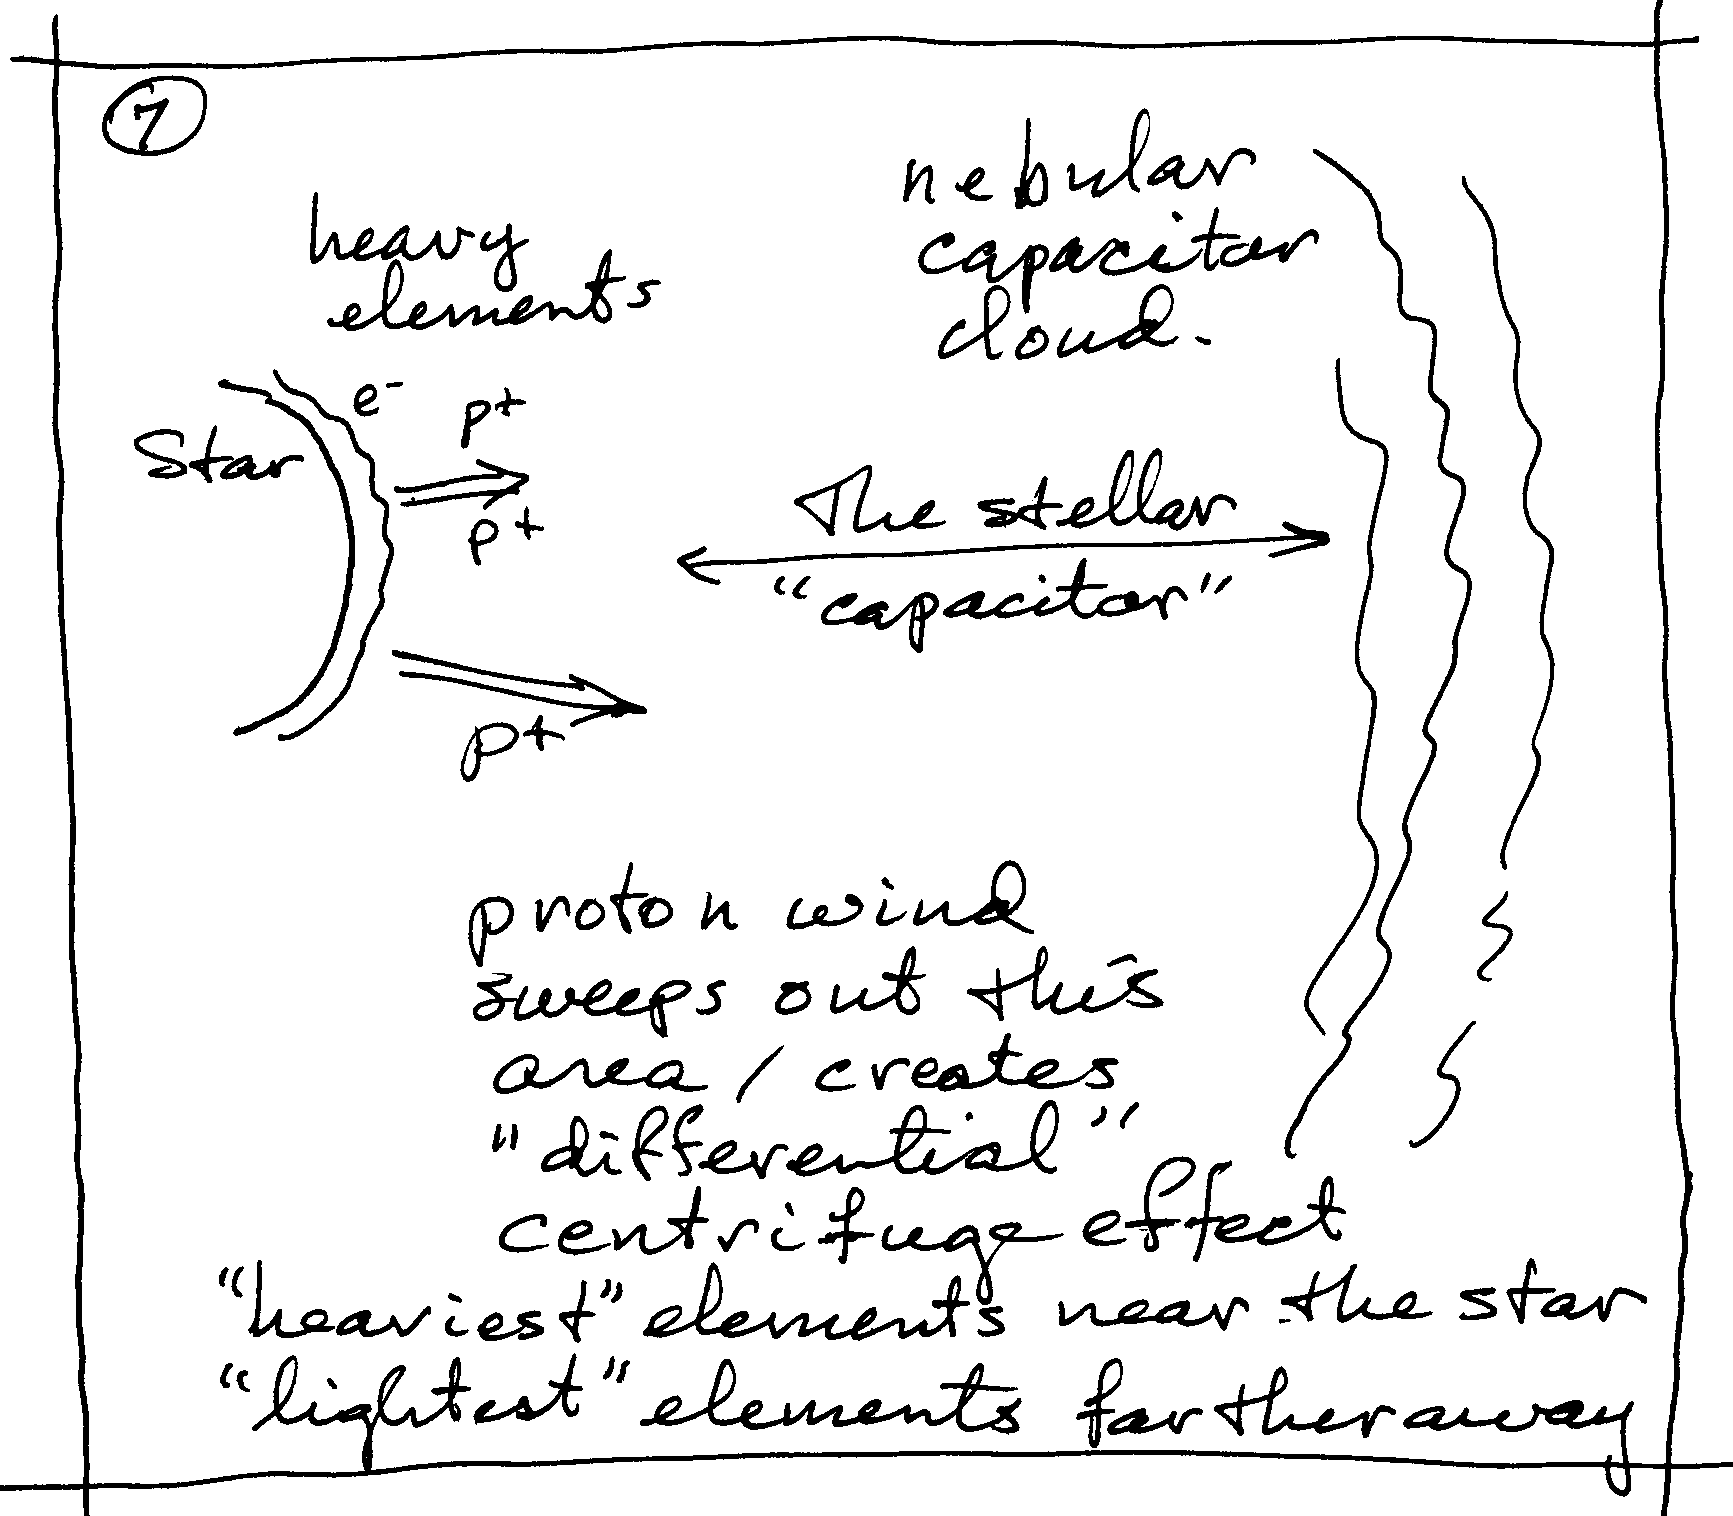 7
heavy
elements
nebular
capacitor
cloud.
e⁻
p+
Star
p+
The stellar
"capacitor"
p+
proton wind
sweeps out this
area / creates
"differential"
centrifuge effect
"heaviest" elements near the star
"lightest" elements farther away